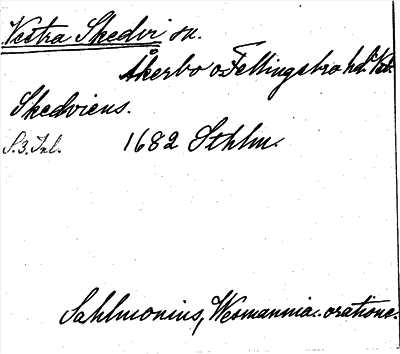 Vestra Skedvi sn.
Åkerbo o. Fellingsbro hd.
Skedviens.
S. 3. Inl. 1682 Sthlm.
Sahlmonius, Wesmannia.. oratione.